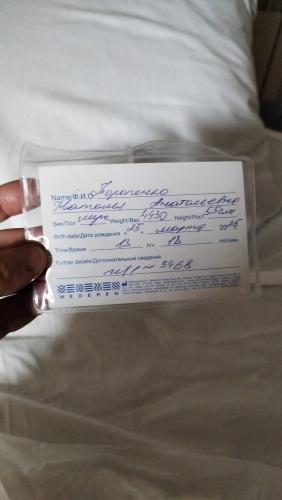 Name/Ф.И.О. Торопенко
Наталья Анатольевна
Sex/Пол муж Weight/Вес 4430 Height/Рост 55см
Birth date/Дата рождения "25" марта 20
Time/Время 13 h/ч 13 min/мин
Further details/Дополнительные сведения
3468
MEDEREN